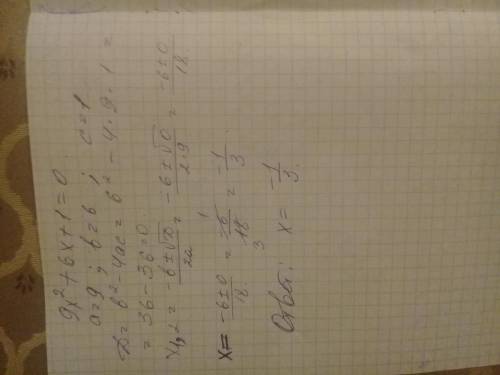 9x² + 6x + 1 = 0
a = 9 ; b = 6 ; c = 1
D = b² - 4ac = 6² - 4 · 9 · 1 =
= 36 - 36 = 0
x₁,₂ = \frac{-b ± √D}{2a} = \frac{-6 ± √0}{2·9} = \frac{-6 ± 0}{18}
x = \frac{-6 ± 0}{18} = \frac{-6}{18} = -\frac{1}{3}
Ответ: x = -\frac{1}{3}.